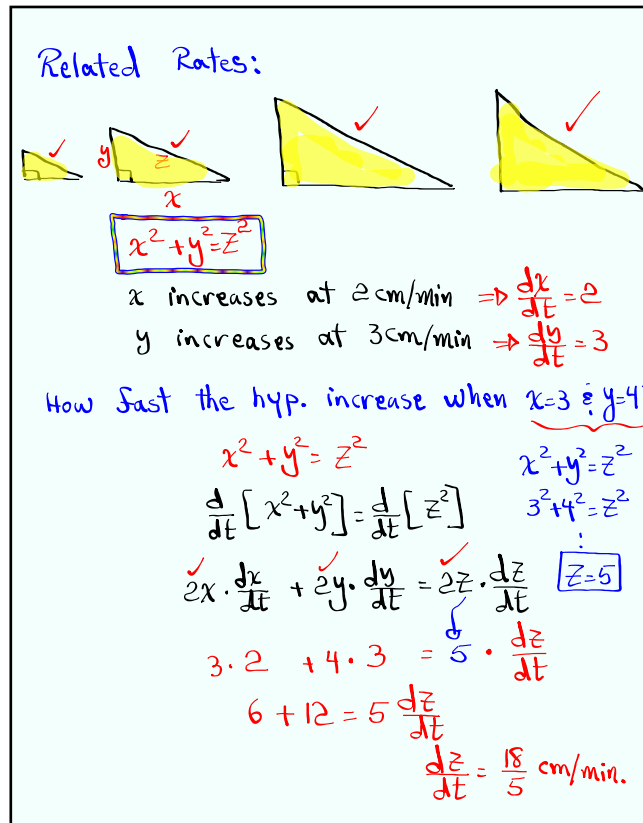 Related Rates:
y z
x
x² + y² = z²
x increases at 2cm/min ⇒ dx/dt = 2
y increases at 3cm/min ⇒ dy/dt = 3
How fast the hyp. increase when x=3 & y=4
x² + y² = z²
x² + y² = z²
d/dt [x² + y²] = d/dt [z²]
3² + 4² = z²
⋮
2x · dx/dt + 2y · dy/dt = 2z · dz/dt
z = 5
3 · 2 + 4 · 3 = 5 · dz/dt
6 + 12 = 5 dz/dt
dz/dt = 18/5 cm/min.